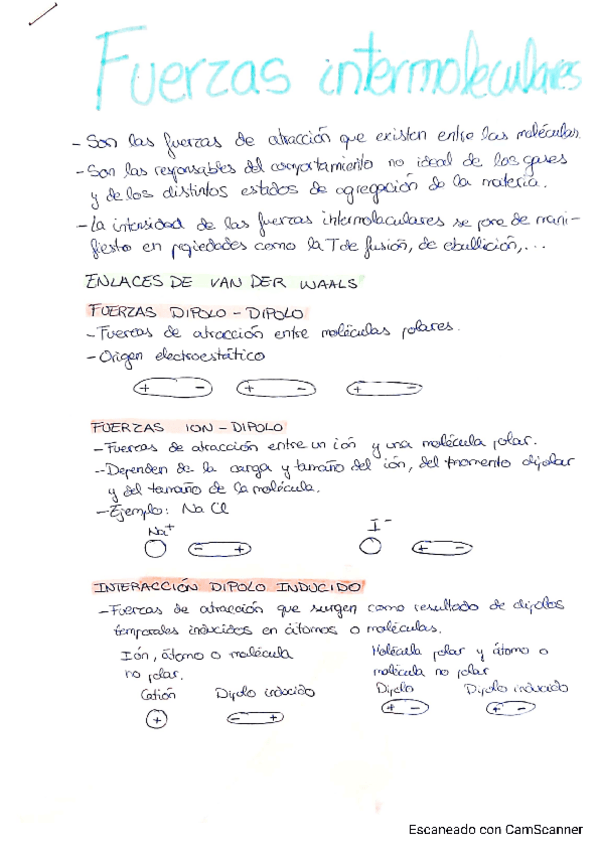 Fuerzas intermoleculares
- Son las fuerzas de atracción que existen entre las moléculas.
- Son las responsables del comportamiento no ideal de los gases
y de los distintos estados de agregación de la materia.
- La intensidad de las fuerzas intermoleculares se pone de mani-
fiesto en propiedades como la T de fusión, de ebullición,...
ENLACES DE VAN DER WAALS
FUERZAS DIPOLO - DIPOLO
- Fuerzas de atracción entre moléculas polares.
- Origen electroestático
+ - + - + -
FUERZAS ION - DIPOLO
- Fuerzas de atracción entre un ión y una molécula polar.
- Dependen de la carga y tamaño del ión, del momento dipolar
y del tamaño de la molécula.
- Ejemplo: Na Cl
Na+ I-
- + + -
INTERACCIÓN DIPOLO INDUCIDO
- Fuerzas de atracción que surgen como resultado de dipolos
temporales inducidos en átomos o moléculas.
Ión, átomo o molécula
no polar.
Catión Dipolo inducido
+ - +
Molécula polar y átomo o
molécula no polar
Dipolo Dipolo inducido
+ - + -
Escaneado con CamScanner